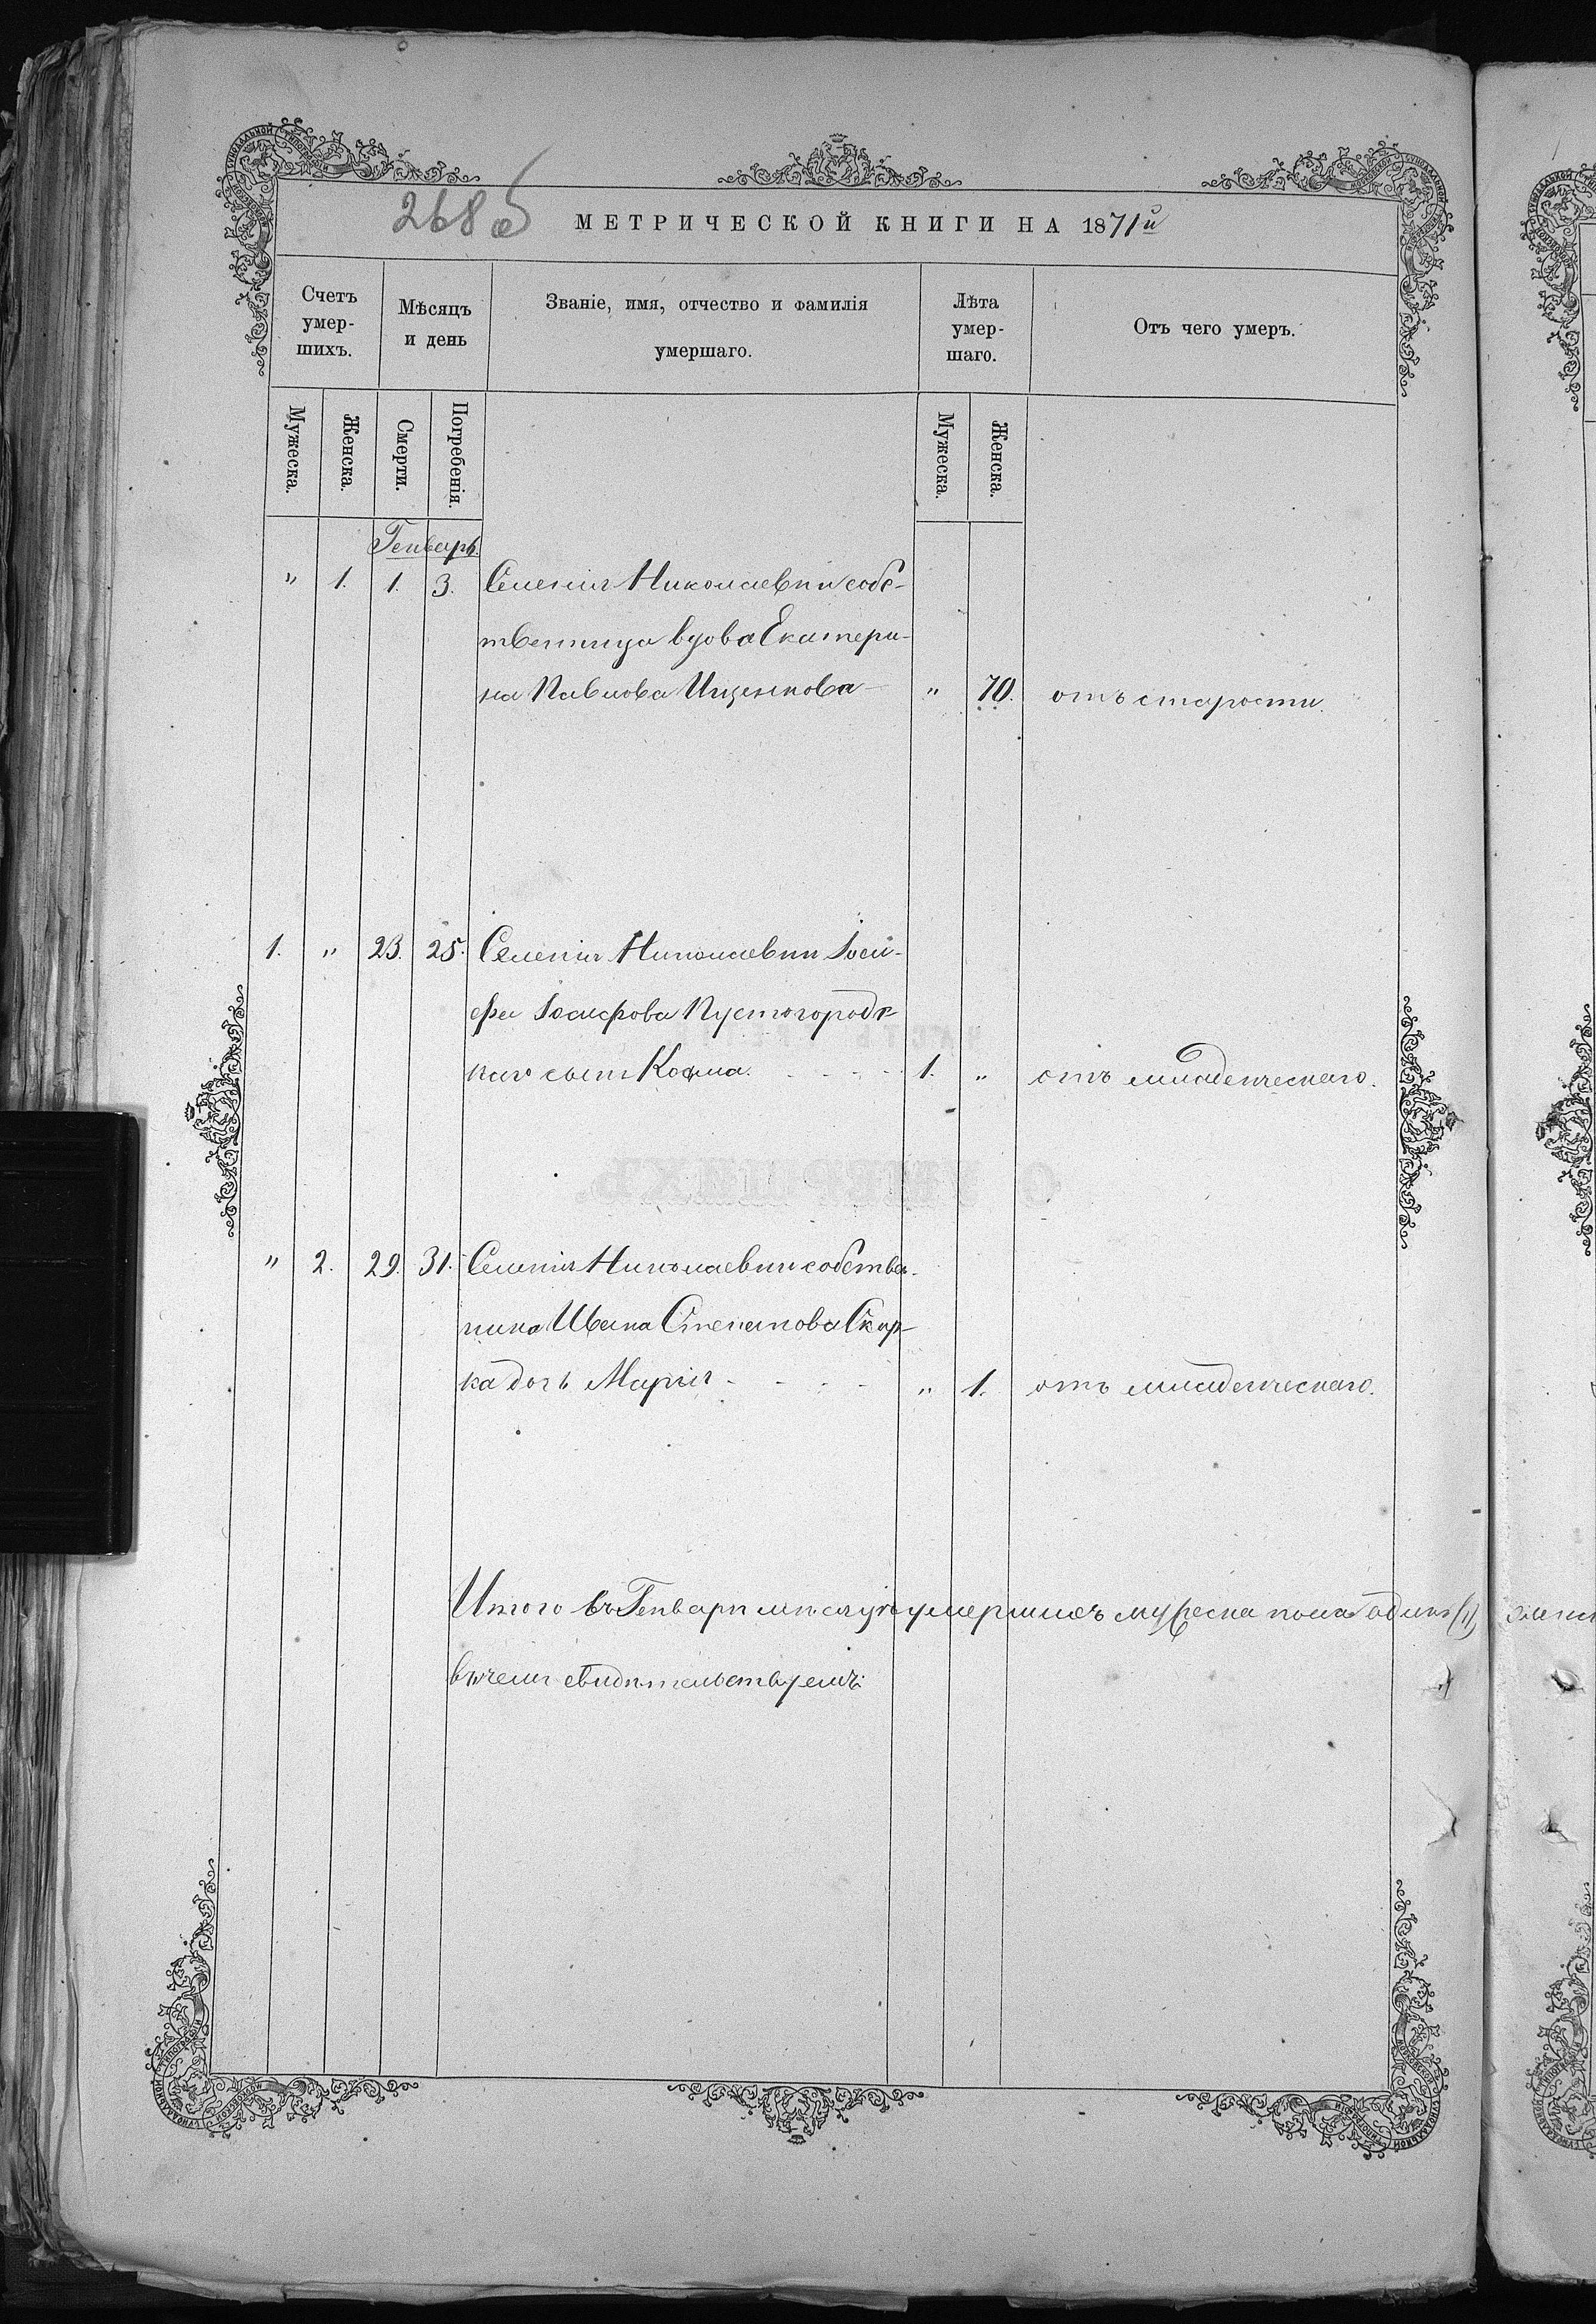 268 об
МЕТРИЧЕСКОЙ КНИГИ НА 1871й
Счетъ умер-шихъ.
Мѣсяцъ и день
Званіе, имя, отчество и фамилія умершаго.
Лѣта умер-шаго.
Отъ чего умеръ.
Мужеска.
Женска.
Смерти.
Погребенія.
Мужеска.
Женска.
Генварь.
" 1. 1. 3. Селенія Николаевки собс-
твенница вдова Екатери-
на Павлова Ищенкова " 70. отъ старости.
1. " 23. 25. Селенія Николаевки Іоси-
фа Іосифова Пустогородс-
каго сынъ Косма. 1. " отъ младенческаго.
" 2. 29. 31. Селенія Николаевки собстве-
ника Ивана Степанова
ка дочь Марія " 1. отъ младенческаго.
Итого въ Генварѣ мѣсяцѣ умершихъ мужеска пола одинъ (1)
въ чемъ свидѣтельствуемъ: